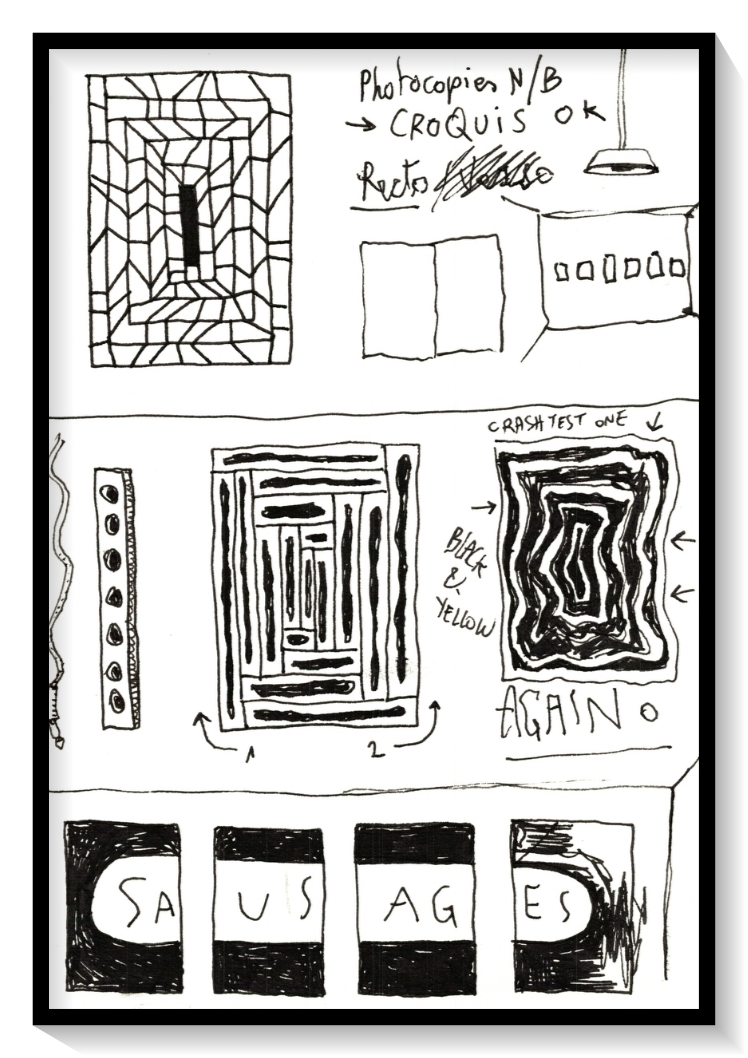 Photocopies N/B
→ CROQUIS OK
Recto Verso
CRASH TEST ONE ↓
BLACK
&
YELLOW
AGAIN
1
2
SA US AG ES